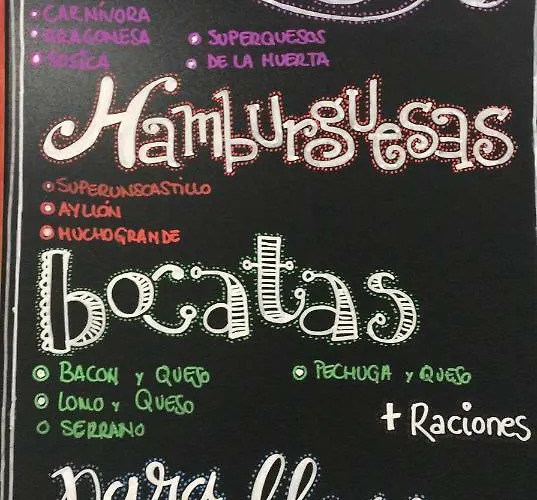 • CARNÍVORA
• ARAGONESA • SUPERQUESOS
• SOSICA • DE LA HUERTA
Hamburguesas
• SUPERUNSCASTILLO
• AYLLÓN
• MUCHOGRANDE
bocatas
• BACON y QUESO • PECHUGA y QUESO
• LOMO y QUESO
+ Raciones
• SERRANO
para